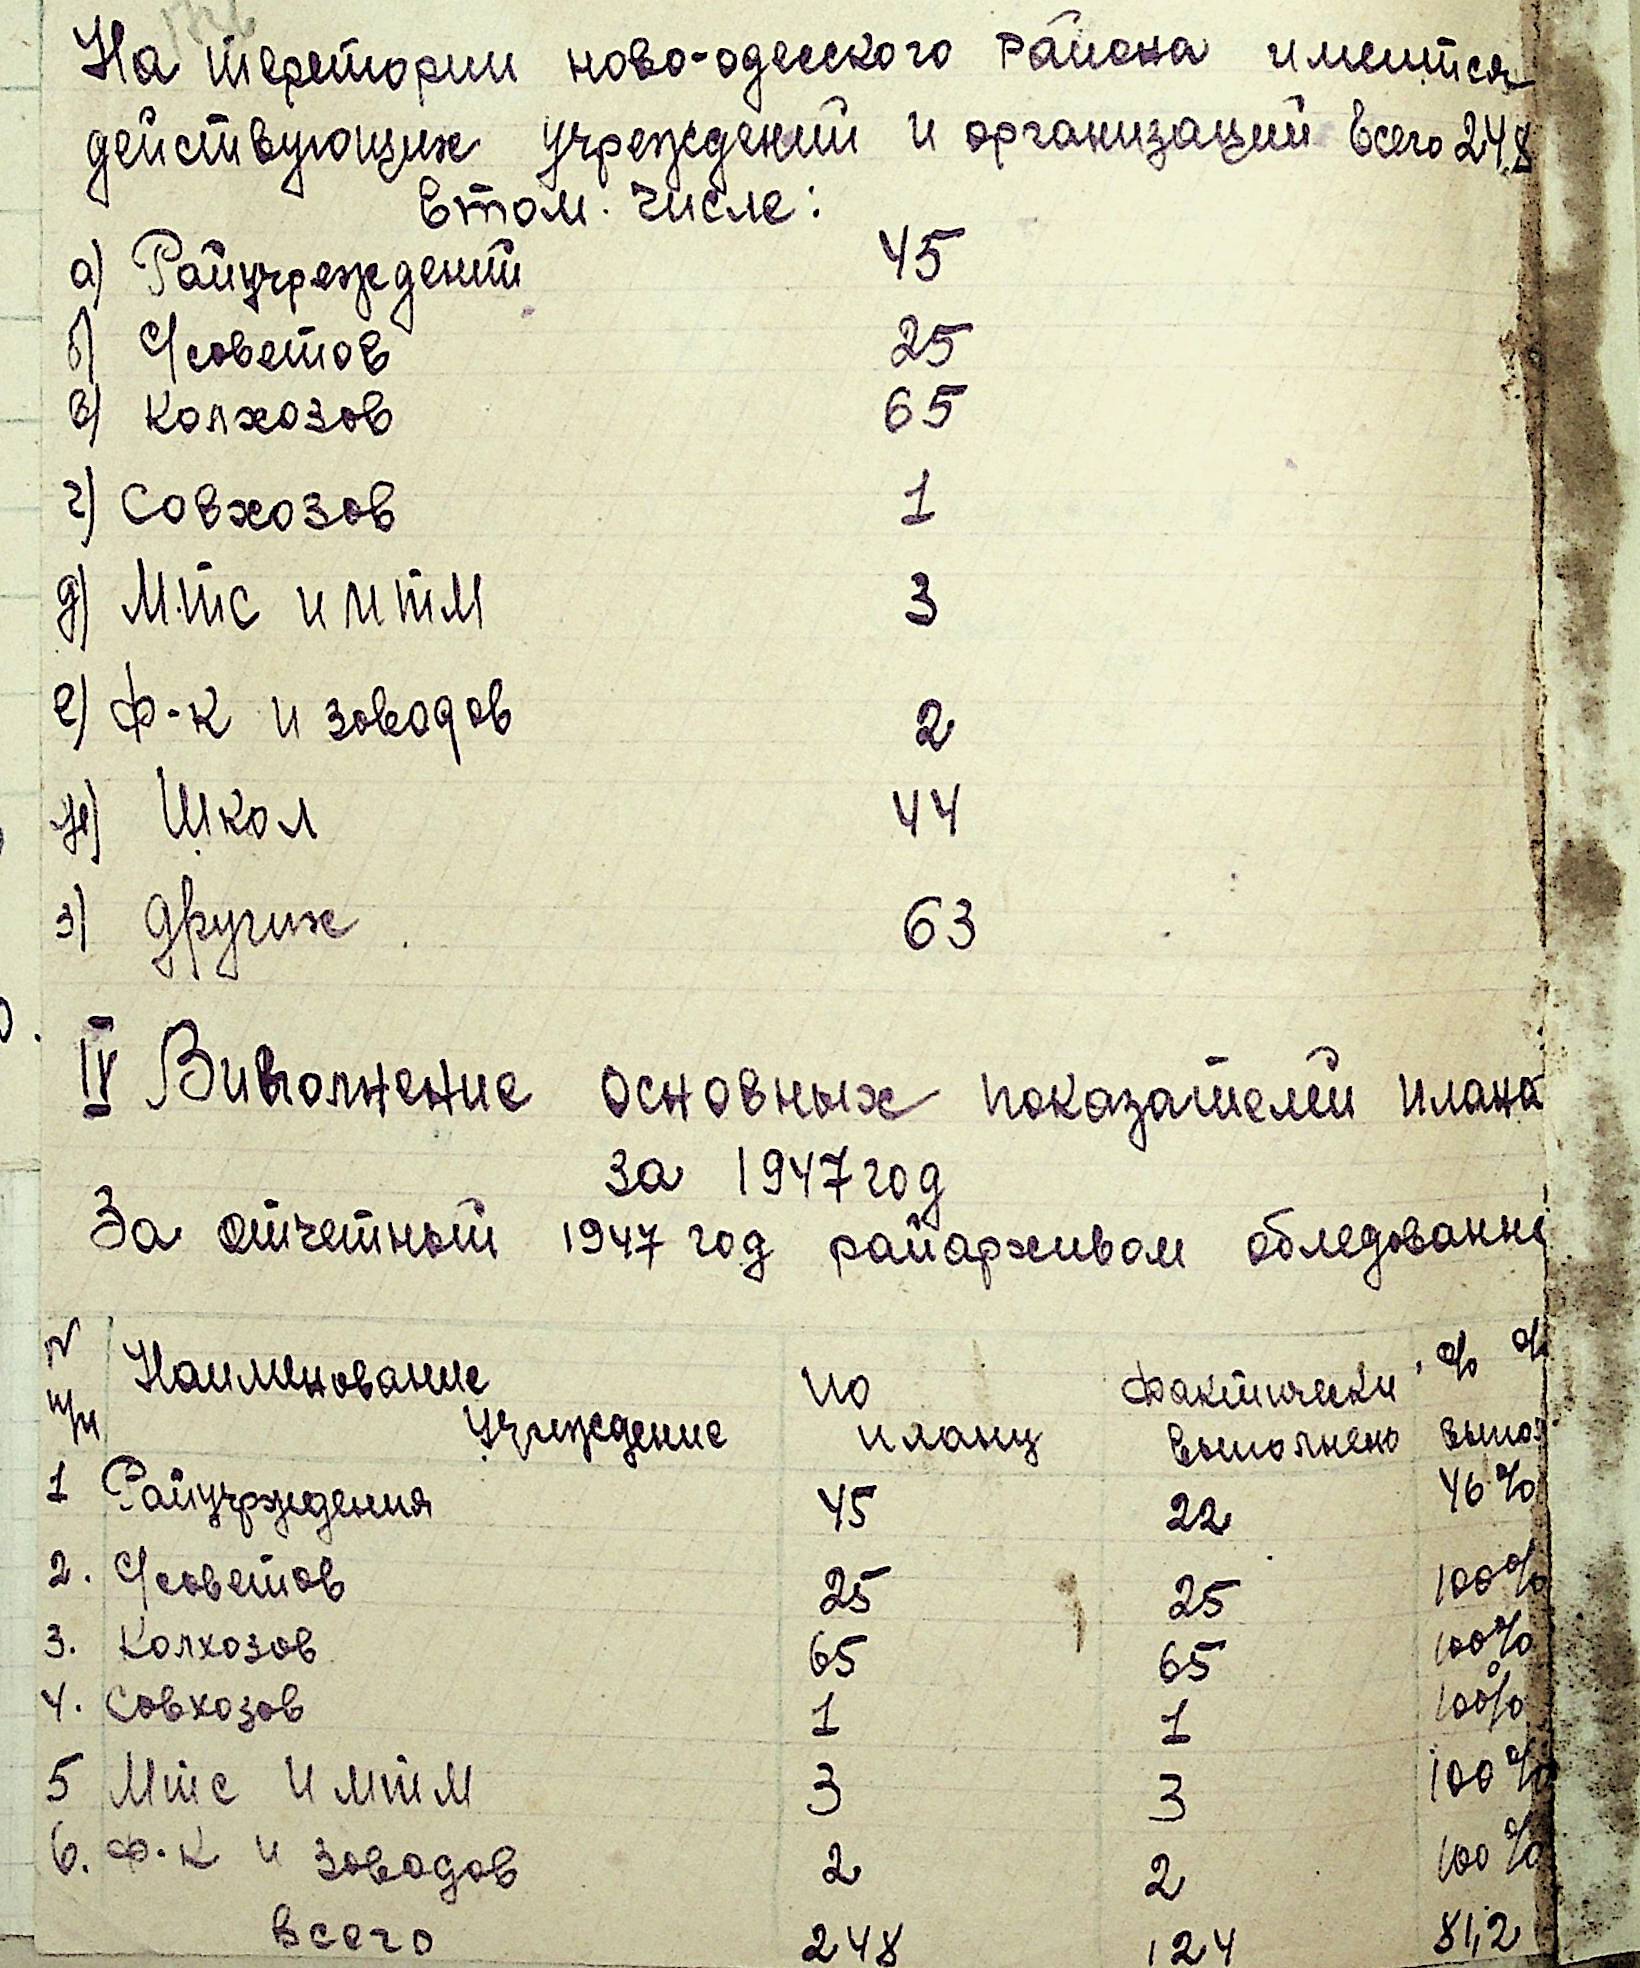 На теретории ново-одесского района имеится
действующих учреждений и организаций всего 248
втом числе:
а) Райучреждений 45
б) С/советов 25
в) Колхозов 65
г) Совхозов 1
д) Мтс и мтм 3
е) Ф-к и зоводов 2
ж) Школ 44
з) других 63
IV Виполнение основных показателей плана
за 1947 год
За отчетный 1947 год райархивом обледованн
N Наименование по фактически % %
п/п Учиждение плану выполнено выпол
1 Райучрждения 45 22 46%
2. С/советов 25 25 100%
3. Колхозов 65 65 100%
4. Совхозов 1 1 100%
5 Мтс и мтм 3 3 100%
6. Ф-к и зоводов 2 2 100%
всего 248 124 81,2